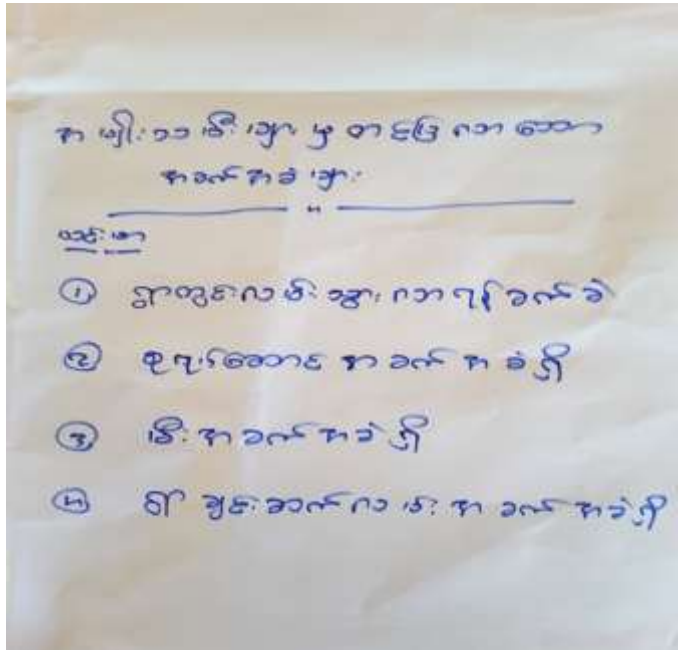 အမျိုးသမီးများမှ တင်ပြလာသော
အခက်အခဲများ
"
ယဉ်းမာ
၁ ရွာတွင်းလမ်းသွားလာရန်ခက်ခဲ
၂ စုရပ်ဆောင် အခက်အခဲရှိ
၃ မီးအခက်အခဲရှိ
၄ ရွာချင်းဆက်လမ်းအခက်အခဲရှိ